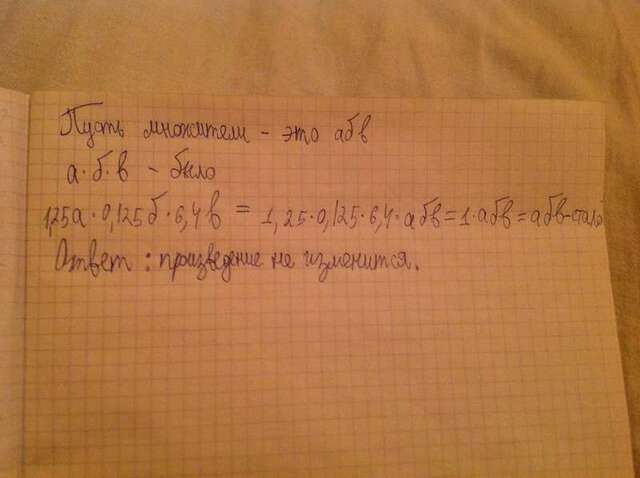 Пусть множители - это абв
а·б·в - было
1,25а·0,125б·6,4в = 1,25·0,125·6,4·абв=1·абв=абв-стало
Ответ: произведение не изменится.